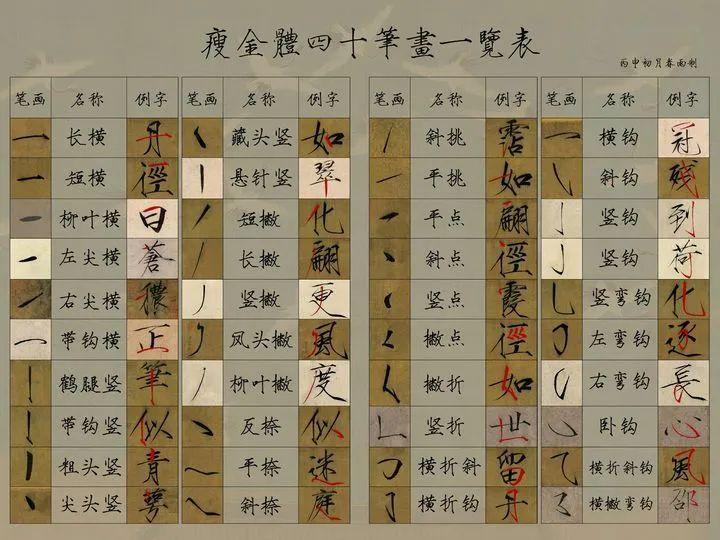 瘦金體四十筆畫一覽表
丙申初月春雨制
笔画 名称 例字 笔画 名称 例字 笔画 名称 例字 笔画 名称 例字
长横 丹 藏头竖 如 斜挑 霑 横钩 冠
短横 徑 悬针竖 翠 平挑 如 斜钩 残
柳叶横 日 短撇 化 平点 翩 竖钩 到
左尖横 蒼 长撇 翩 斜点 徑 竖钩 荷
右尖横 穠 竖撇 更 竖点 霞 竖弯钩 化
带钩横 正 风头撇 風 撇点 徑 左弯钩 逐
鹤腿竖 筆 柳叶撇 度 撇折 如 右弯钩 長
带钩竖 似 反捺 似 竖折 世 卧钩 心
粗头竖 青 平捺 迷 横折斜 留 横折斜钩 風
尖头竖 萼 斜捺 庭 横折钩 丹 横撇弯钩 邵